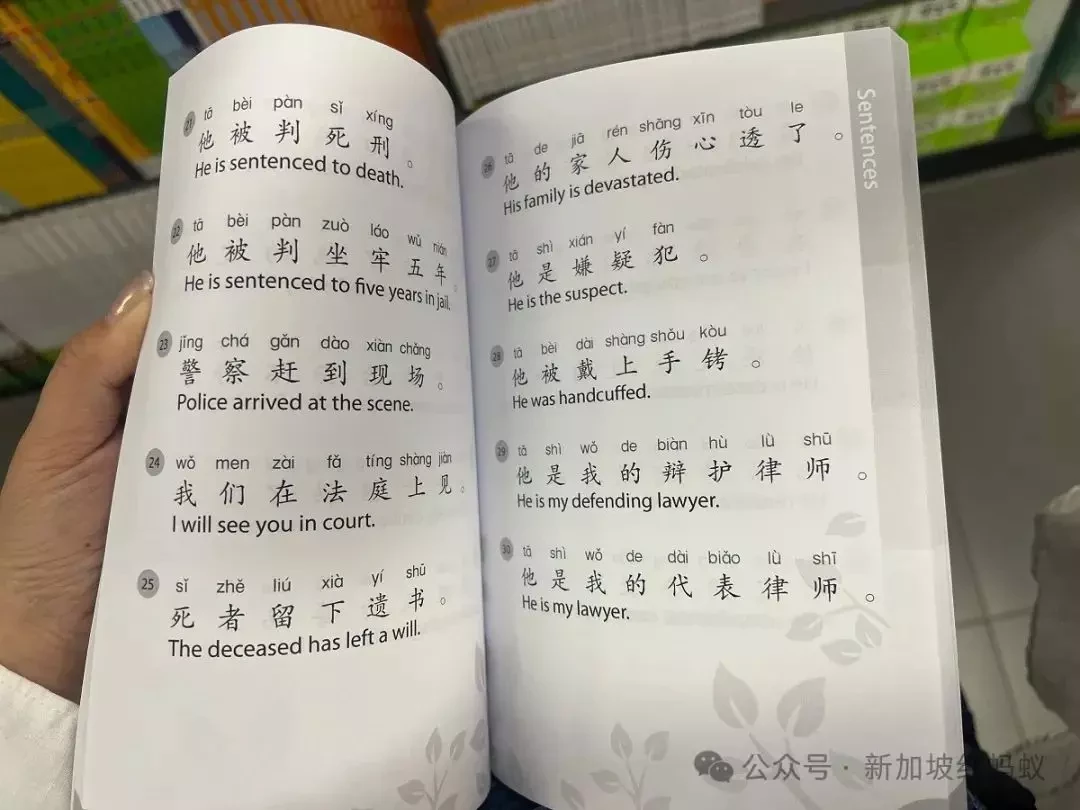 21
tā bèi pàn sǐ xíng
他被判死刑。
He is sentenced to death.
22
tā bèi pàn zuò láo wǔ nián
他被判坐牢五年。
He is sentenced to five years in jail.
23
jǐng chá gǎn dào xiàn chǎng
警察赶到现场。
Police arrived at the scene.
24
wǒ men zài fǎ tíng shàng jiàn
我们在法庭上见。
I will see you in court.
25
sǐ zhě liú xià yí shū
死者留下遗书。
The deceased has left a will.
Sentences
26
tā de jiā rén shāng xīn tòu le
他的家人伤心透了。
His family is devastated.
27
tā shì xián yí fàn
他是嫌疑犯。
He is the suspect.
28
tā bèi dài shàng shǒu kòu
他被戴上手铐。
He was handcuffed.
29
tā shì wǒ de biàn hù lǜ shū
他是我的辩护律师。
He is my defending lawyer.
30
tā shì wǒ de dài biǎo lǜ shī
他是我的代表律师。
He is my lawyer.
公众号 · 新加坡红蚂蚁